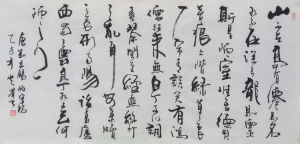 山不在高有仙則名
水不在深有龍則靈
斯是陋室惟吾德馨
苔痕上階綠草色
入簾青談笑有鴻
儒往來無白丁可以調
素琴閱金經無絲竹
之亂耳無案牘
之勞形南陽諸葛廬
西蜀子雲亭孔子云何
陋之有
唐劉禹錫陋室銘
乙未年